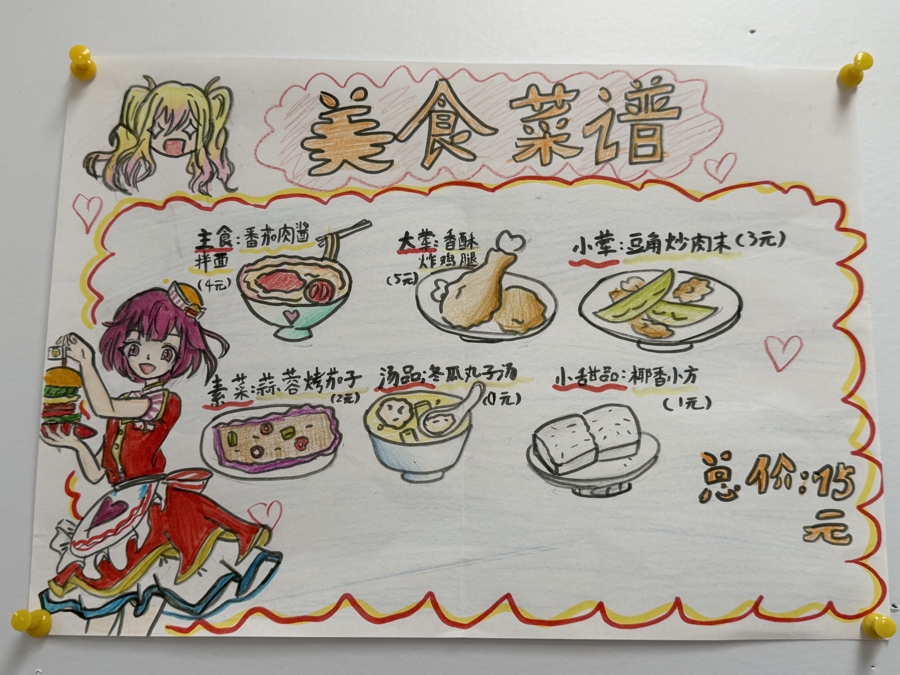 美食菜谱
主食:番茄肉酱
拌面
(4元)
大荤:香酥
炸鸡腿
(5元)
小荤:豆角炒肉末(3元)
素菜:蒜蓉烤茄子
(2元)
汤品:冬瓜丸子汤
(0元)
小甜品:椰香小方
(1元)
总价:15
元